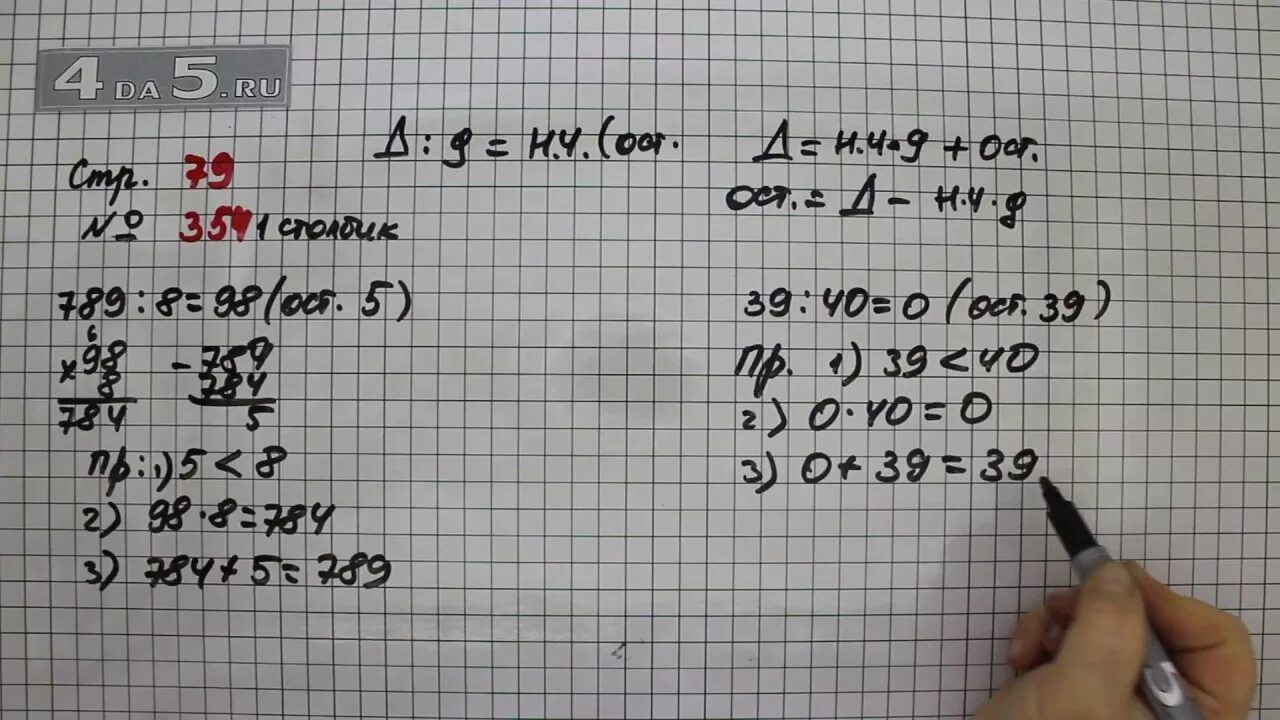 4DA5.RU
Δ : д = н.ч. (ост.
Δ = н.ч·д + ост.
Стр. 79
ост. = Δ - н.ч·д
№ 354 1 столбик
789 : 8 = 98 (ост. 5)
6
× 98
8
784
- 789
784
5
пр: 1) 5 < 8
2) 98 · 8 = 784
3) 784 + 5 = 789
39 : 40 = 0 (ост. 39)
Пр. 1) 39 < 40
2) 0 · 40 = 0
3) 0 + 39 = 39